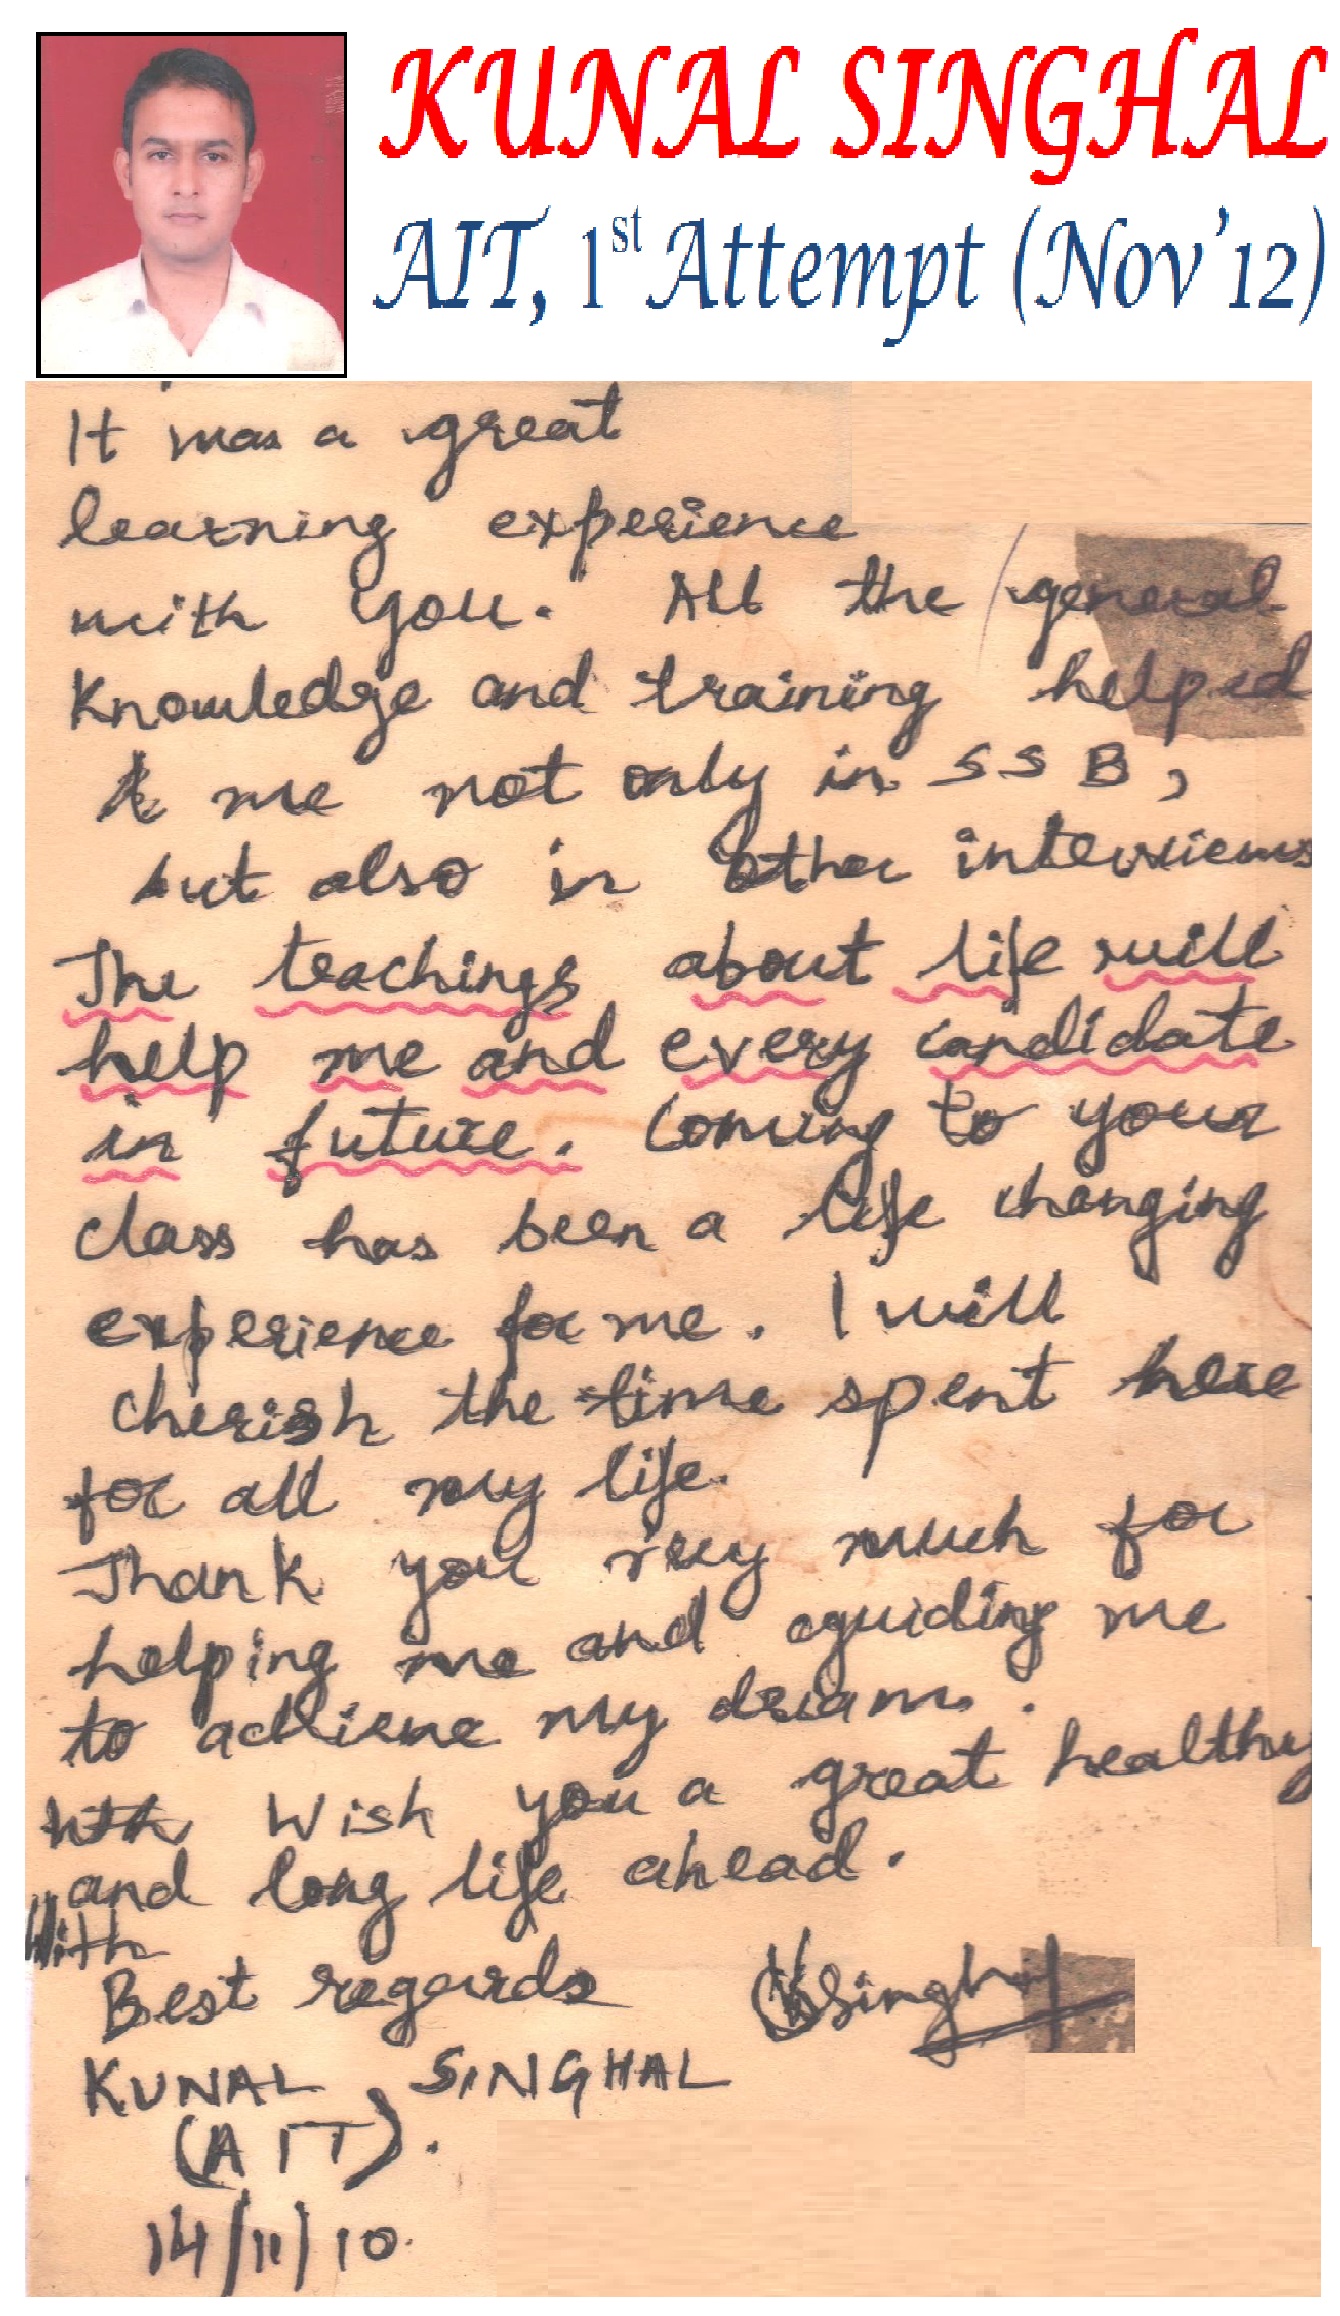 KUNAL SINGHAL
AIT, 1st Attempt (Nov'12)
It was a great
learning experience
with you. All the general
knowledge and training helped
me not only in SSB,
but also in other interviews
The teachings about life will
help me and every candidate
in future. Coming to your
class has been a life changing
experience for me. I will
cherish the time spent here
for all my life.
Thank you very much for
helping me and guiding me
to achieve my dream.
Wish you a great healthy
and long life ahead.
With
Best regards KSinghal
KUNAL SINGHAL
(AIT).
14/11/10.